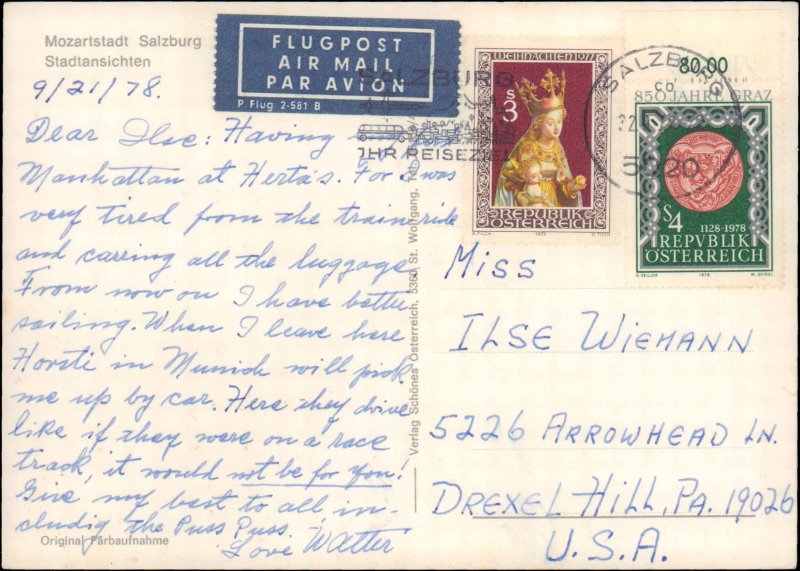 Mozartstadt Salzburg
Stadtansichten
FLUGPOST
AIR MAIL
PAR AVION
P. Flug 2-581 B
SALZBURG
IHR REISEZIEL
WEIHNACHTEN 1977
S 3
REPUBLIK
ÖSTERREICH
A. FISCH 1977 H. TOTH
SALZBURG
5020
80.00
850 JAHRE GRAZ
S4
1128-1978
REPVBLIK
ÖSTERREICH
O. ZEILLER 1978 W. SEIDEL
9/21/78.
Dear Ilse: Having
Manhattan at Herta's. For I was
very tired from the train ride
and carring all the luggage
From now on I have better
sailing. When I leave here
Horsti in Munich will pick
me up by car. Here they drive
like if they were on a race
track, it would not be for you!
Give my best to all, in-
cludig the Puss Puss.
Love Walter
Original Farbaufnahme
Verlag Schönes Österreich, 5360 St. Wolfgang,
Miss
ILSE WIEMANN
5226 ARROWHEAD LN.
DREXEL HILL, PA. 19026
U.S.A.